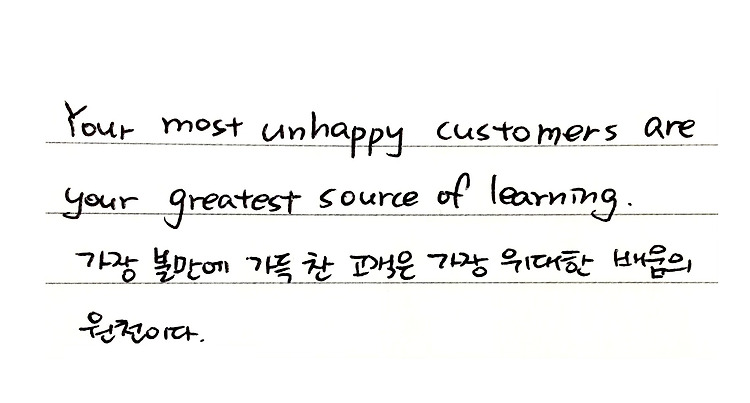 Your most unhappy customers are
your greatest source of learning.
가장 불만에 가득 찬 고객은 가장 위대한 배움의
원천이다.